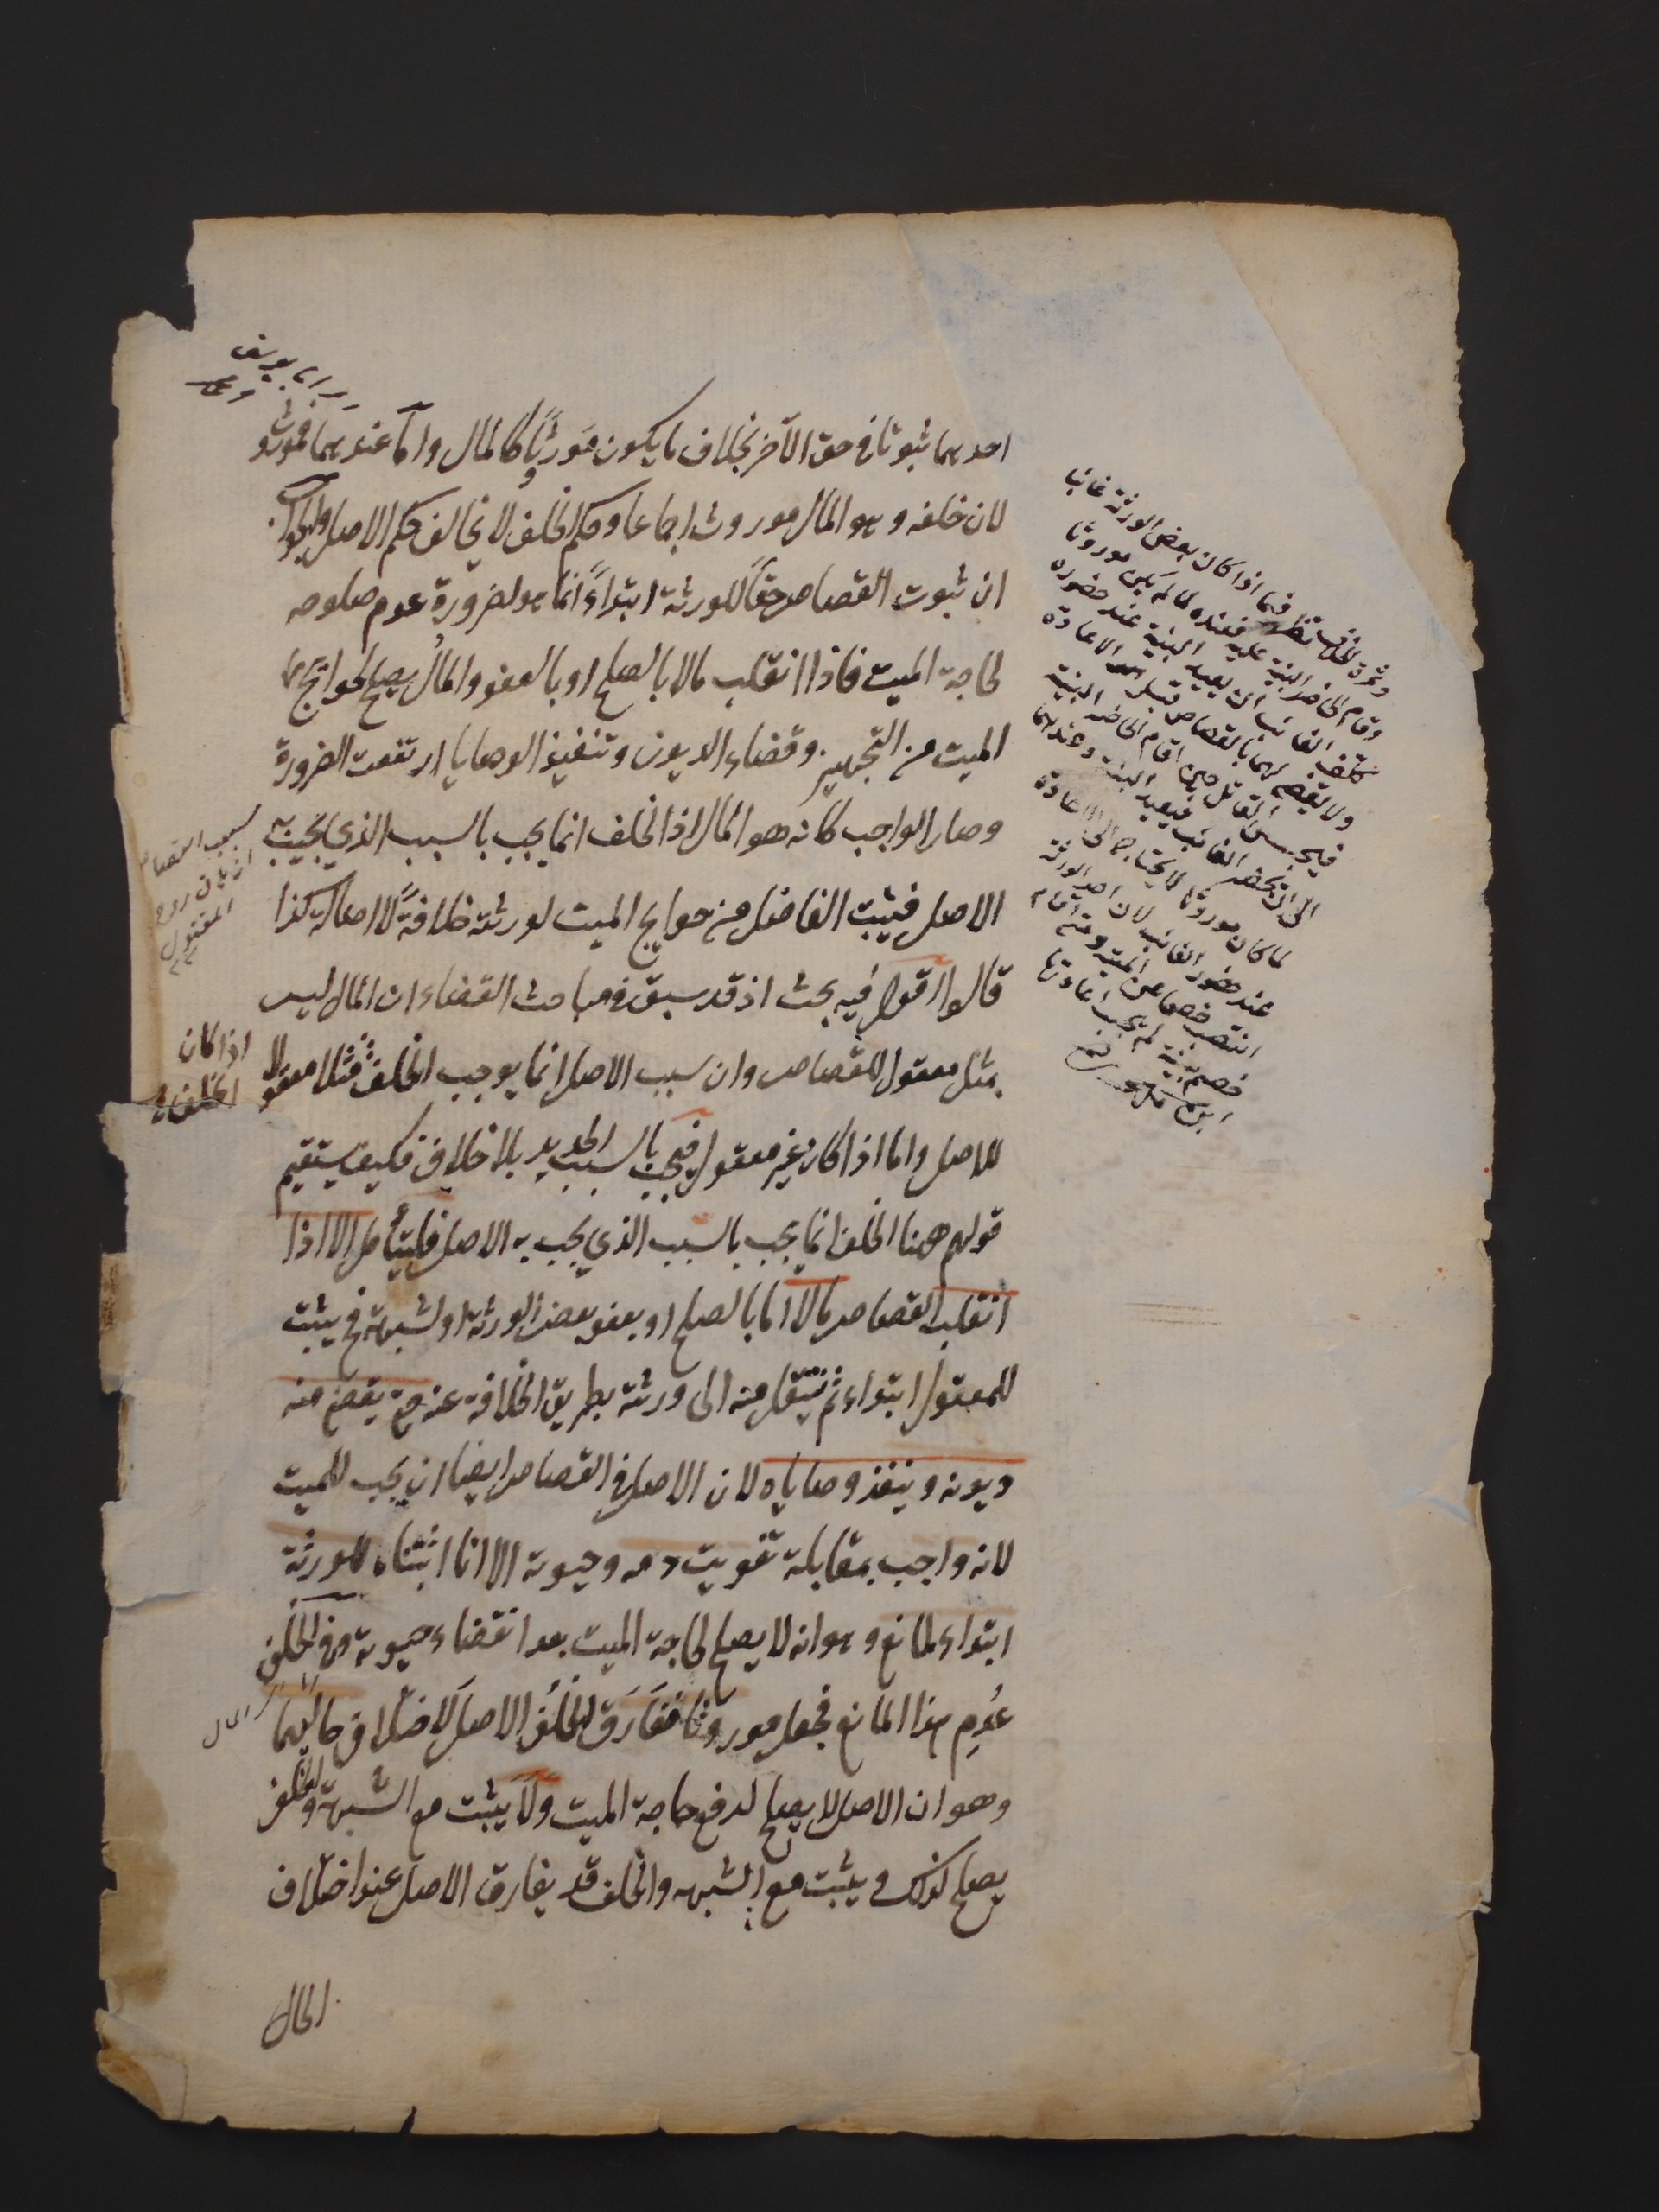 ابي يوسف
ومحمد
احدهما ثبوتا في حق الآخر بخلاف ما يكون مورثًا كالمال واما عندهما فموروث
لان خلفه وهو المال موروث اجماعا وحكم الخلف لا يخالف حكم الاصل والجواب
ان ثبوت القصاص حقًا للورثة ابتداءً انما هو لضرورة عدم صلوحه
لحاجة الميت فاذا انقلب مالا بالصلح او بالعفو والمالُ يصلح لحوائج
الميت من التجهيز وقضاء الديون وتنفيذ الوصايا ارتفعت الضرورة
وصار الواجب كانه هو المال اذ الخلف انما يجب بالسبب الذي يجب به
الاصل فيثبت الفاضل من حوايج الميت لورثته خلافةً لا اصالة كذا
قالوا اقول فيه بحث اذ قد سبق في مباحث القضاء ان المال ليس
بمثل معقول للقصاص وان سبب الاصل انما يوجب الخلف مثلا معقولا
للاصل واما اذا كان غير معقول فيجب بالسبب الجديد بلا خلاف فكيف يستقيم
قولهم ههنا الخلف انما يجب بالسبب الذي يجب به الاصل فليتأمل الا اذا
انقلب القصاص مالا اما بالصلح او بعفو بعض الورثة او لشبهة فح يثبت
للمقتول ابتداء ثم ينتقل منه الى ورثته بطريق الخلافة عنه حتى يقضى منه
ديونه وينفذ وصاياه لان الاصل في القصاص ايضا ان يجب للميت
لانه واجب بمقابلة تفويت دمه وحيوته الا انا اثبتناه للورثة
ابتداء لمانع وهو انه لا يصلح لحاجة الميت بعد انقضاء حيوته وفي الخلف
عُدِم هذا المانع فجعل موروثا ففَارَق الخلفُ الاصلَ لاختلاف حاليهما
وهو ان الاصل لا يصلح لدفع حاجة الميت ولا يثبت مع الشبهة والخلف
يصلح لذلك ويثبت مع الشبهه والخلف قد يفارق الاصل عند اختلاف
الحال
وثمرة الخلاف تظهر فيما اذا كان بعض الورثة غائبا
وقام الحاضر البينة عليه فعنده لما لم يكن موروثا
كلف الغائب ان يعيد البينة عند حضوره
ولا يقضى لهما بالقصاص قبل الاعادة
فيحبس القاتل حين اقام الحاضر البينة
الى ان يحضر الغائب فيعيد البينة وعندهما
لما كان موروثا لا يحتاج الى الاعادة
عند حضور الغائب لان احد الورثة
انتصب خصما عن الميت ومتى اقام
خصم بينة لم يجب اعادتها
ابن ملك
سبب القصاص
المقتول
اذا كان
الخلف